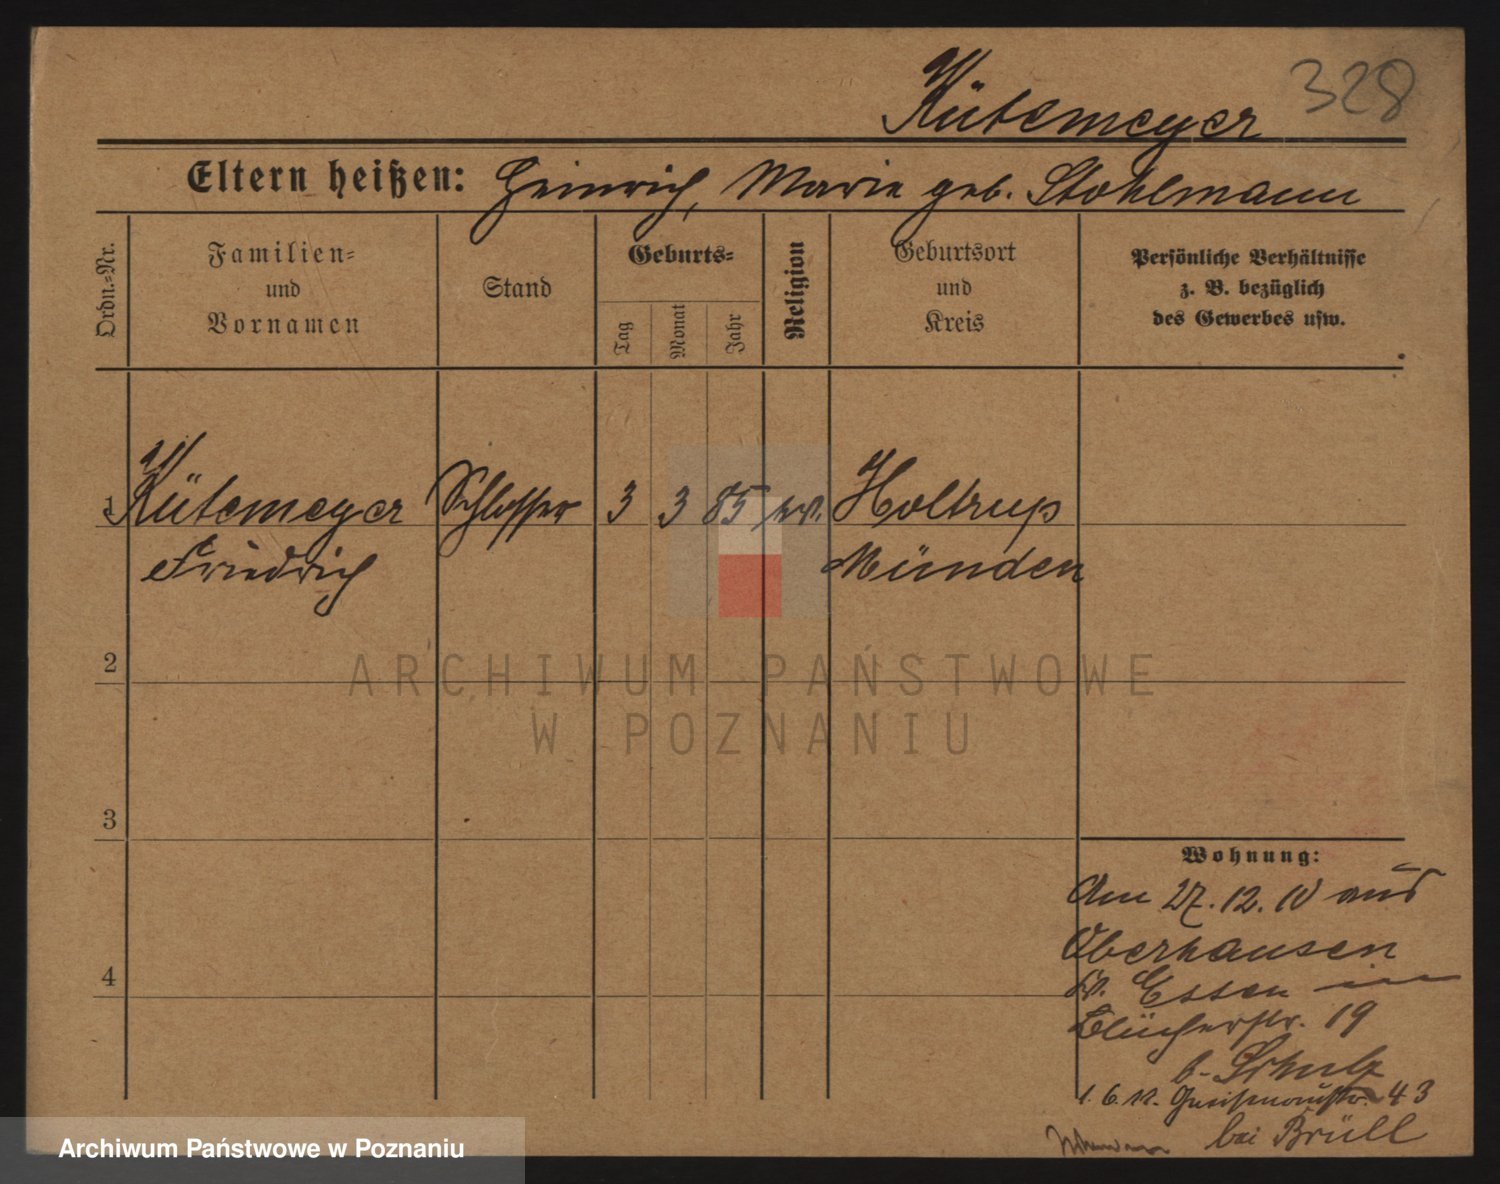 Kütemeyer 328
Eltern heißen: Heinrich, Marie geb. Stohlmann
Ordn.-Nr.
Familien-
und
Vornamen
Stand
Geburts-
Tag
Monat
Jahr
Religion
Geburtsort
und
Kreis
Persönliche Verhältnisse
z. B. bezüglich
des Gewerbes usw.
1 Kütemeyer Schlosser 3 3 85 ev. Holtrup
Friedrich Münden
2
ARCHIWUM PAŃSTWOWE
W POZNANIU
3
Wohnung:
Am 27.12.10 aus
Oberhausen
Kr. Essen in
4
Blücherstr. 19
b. Schulz
1. 6. Gneisenaustr. 43
bei Brüll
Archiwum Państwowe w Poznaniu